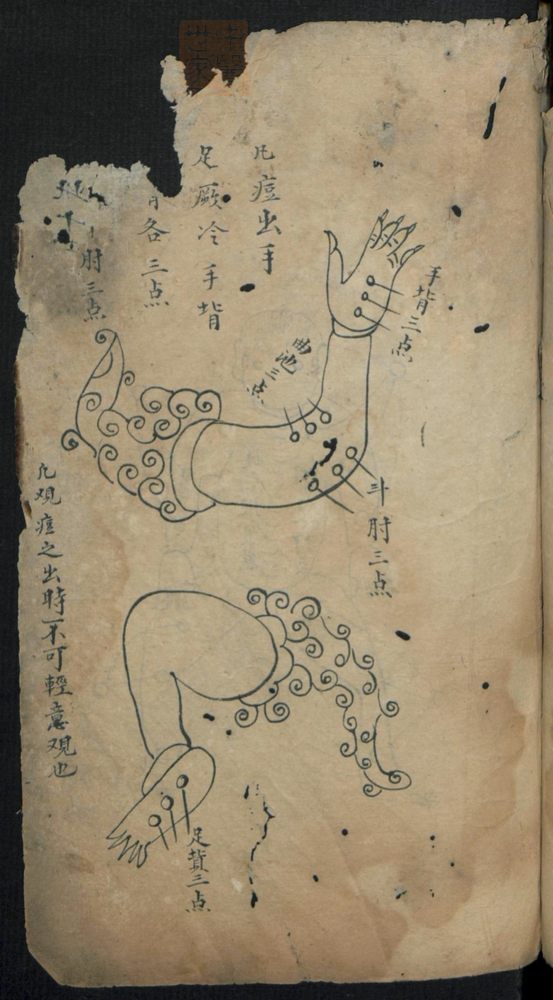 凡痘出手
足厥冷手背
各三点
肘三点
手背三点
曲池三点
斗肘三点
足背三点
凡观痘之出時不可輕意观也